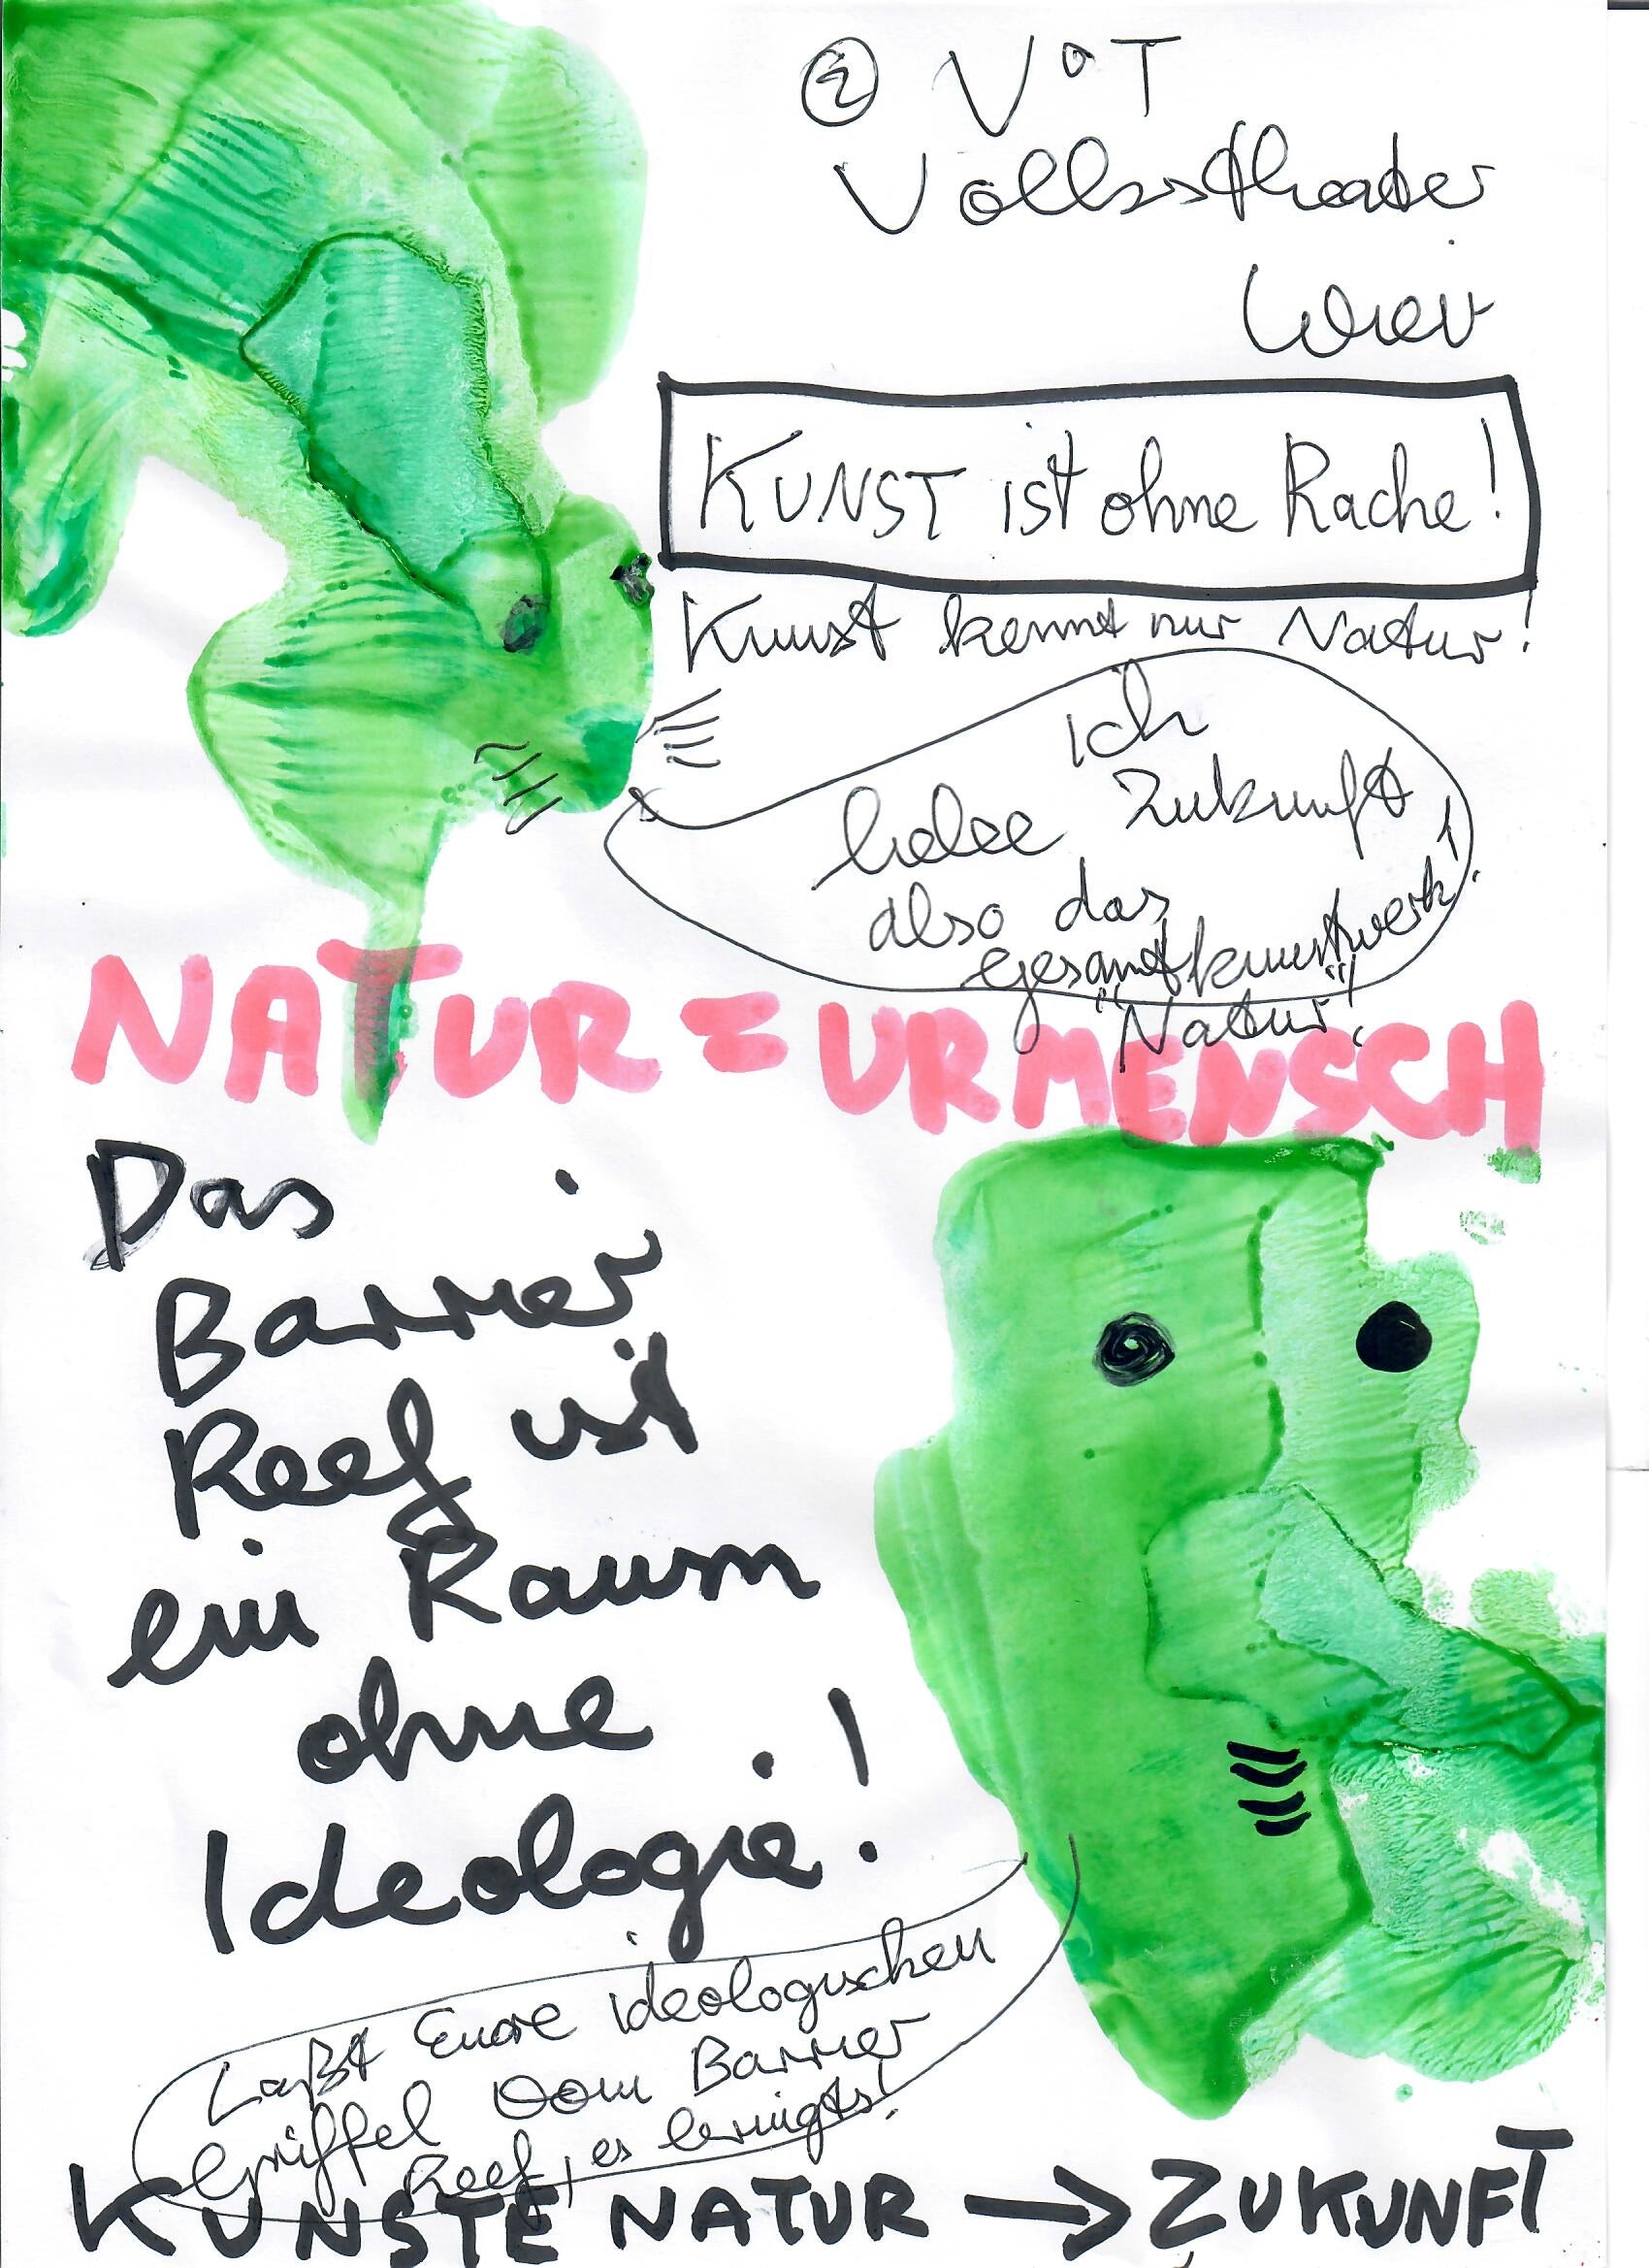 ② V°T
Volkstheater
Wien
KUNST ist ohne Rache!
Kunst kennt nur Natur!
ich
liebe Zukunft
also das
Gesamtkunstwerk!
"Natur"!
NATUR = URMENSCH
Das
Barrier
Reef ist
ein Raum
ohne
Ideologie!
Laßt Eure ideologischen
Griffel vom Barrier
Reef, es
KUNSTE NATUR → ZUKUNFT